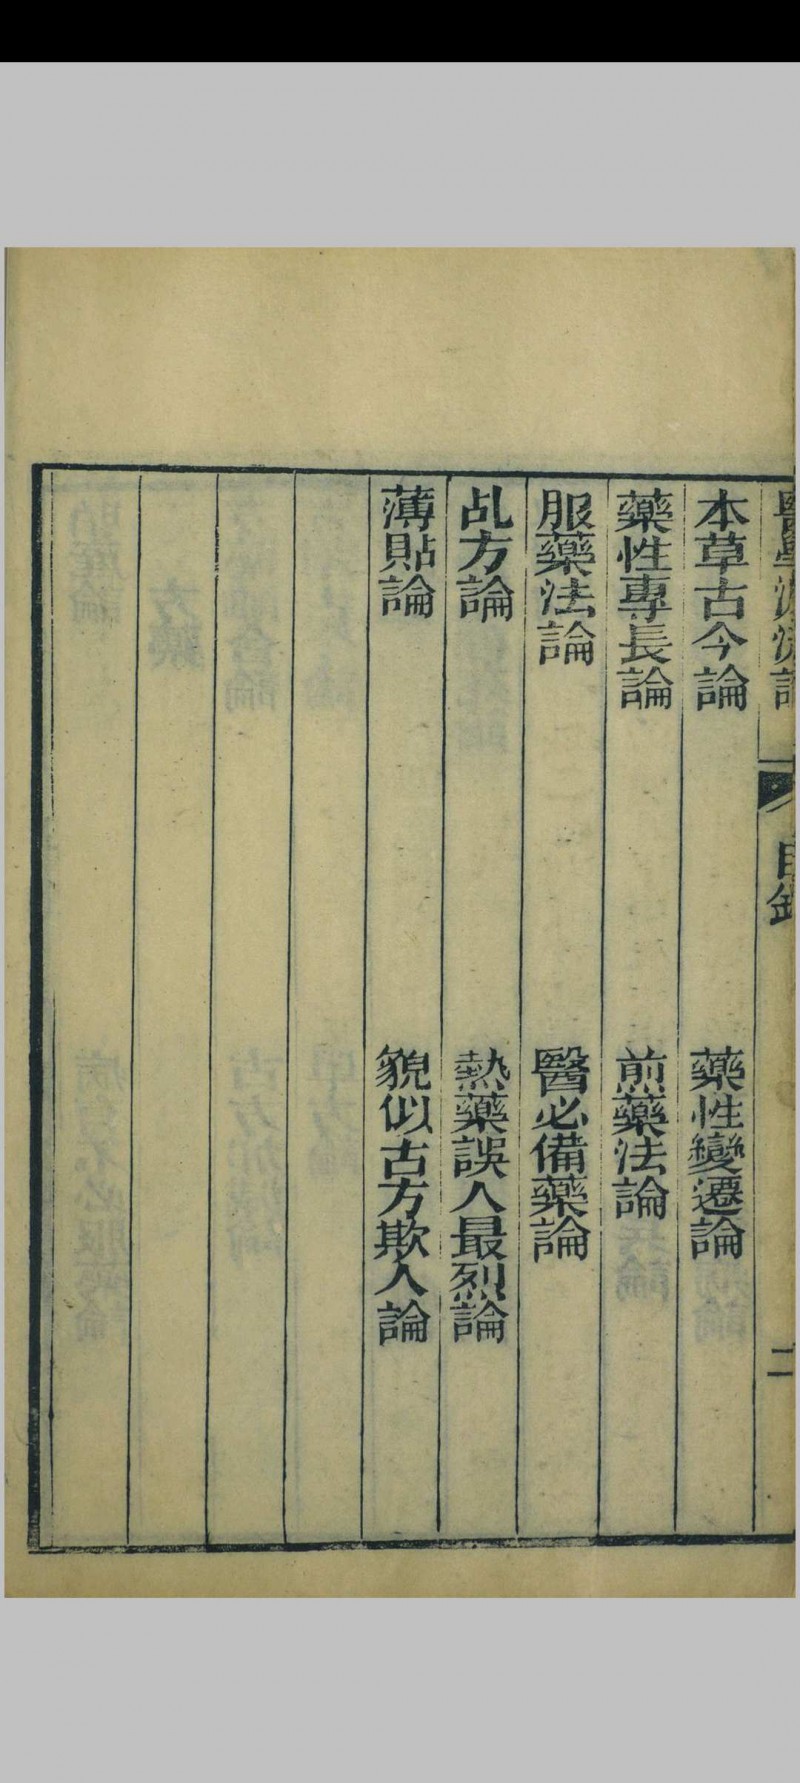 醫學源流論 目錄 二
本草古今論 藥性變遷論
藥性專長論 煎藥法論
服藥法論 醫必備藥論
乩方論 熱藥誤人最烈論
薄貼論 貌似古方欺人論